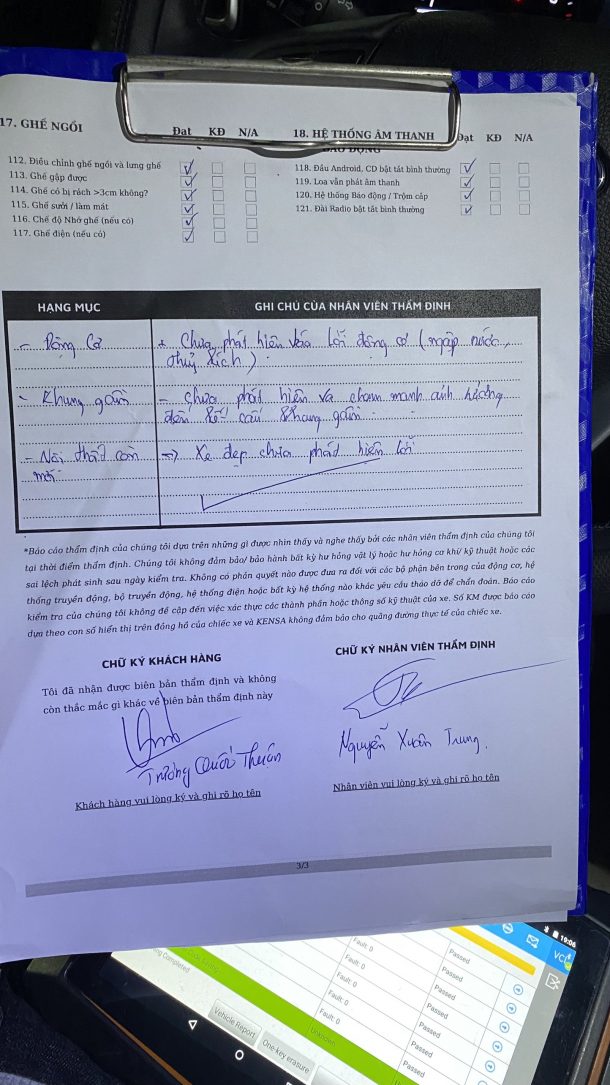 17. GHẾ NGỒI
Đạt KĐ N/A
112. Điều chỉnh ghế ngồi và lưng ghế
113. Ghế gập được
114. Ghế có bị rách >3cm không?
115. Ghế sưởi / làm mát
116. Chế độ Nhớ ghế (nếu có)
117. Ghế điện (nếu có)
18. HỆ THỐNG ÂM THANH
BÁO ĐỘNG
Đạt KĐ N/A
118. Đầu Android, CD bật tắt bình thường
119. Loa vẫn phát âm thanh
120. Hệ thống Báo động / Trộm cắp
121. Đài Radio bật tắt bình thường
HẠNG MỤC
GHI CHÚ CỦA NHÂN VIÊN THẨM ĐỊNH
- Động Cơ
+ Chưa phát hiện lỗi động cơ (ngập nước,
thuỷ kích).
- Khung gầm
- chưa phát hiện va chạm mạnh ảnh hưởng
đến kết cấu khung gầm
- Nội thất còn
mới
=> Xe đẹp chưa phát hiện lỗi
*Báo cáo thẩm định của chúng tôi dựa trên những gì được nhìn thấy và nghe thấy bởi các nhân viên thẩm định của chúng tôi
tại thời điểm thẩm định. Chúng tôi không đảm bảo/ bảo hành bất kỳ hư hỏng vật lý hoặc hư hỏng cơ khí/ kỹ thuật hoặc các
sai lệch phát sinh sau ngày kiểm tra. Không có phán quyết nào được đưa ra đối với các bộ phận bên trong của động cơ, hệ
thống truyền động, bộ truyền động, hệ thống điện hoặc bất kỳ hệ thống nào khác yêu cầu tháo dỡ để chẩn đoán. Báo cáo
kiểm tra của chúng tôi không đề cập đến việc xác thực các thành phần hoặc thông số kỹ thuật của xe. Số KM được báo cáo
dựa theo con số hiển thị trên đồng hồ của chiếc xe và KENSA không đảm bảo cho quãng đường thực tế của chiếc xe.
CHỮ KÝ KHÁCH HÀNG
Tôi đã nhận được biên bản thẩm định và không
còn thắc mắc gì khác về biên bản thẩm định này
Trương Quốc Thuận
Khách hàng vui lòng ký và ghi rõ họ tên
CHỮ KÝ NHÂN VIÊN THẨM ĐỊNH
Nguyễn Xuân Trung.
Nhân viên vui lòng ký và ghi rõ họ tên
3/3
19:06
VCI
Fault: 0
Passed
Fault: 0
Passed
Fault: 0
Passed
Fault: 0
Passed
Fault: 0
Passed
Unknown
Passed
Completed
Vehicle Report
One-key erasure